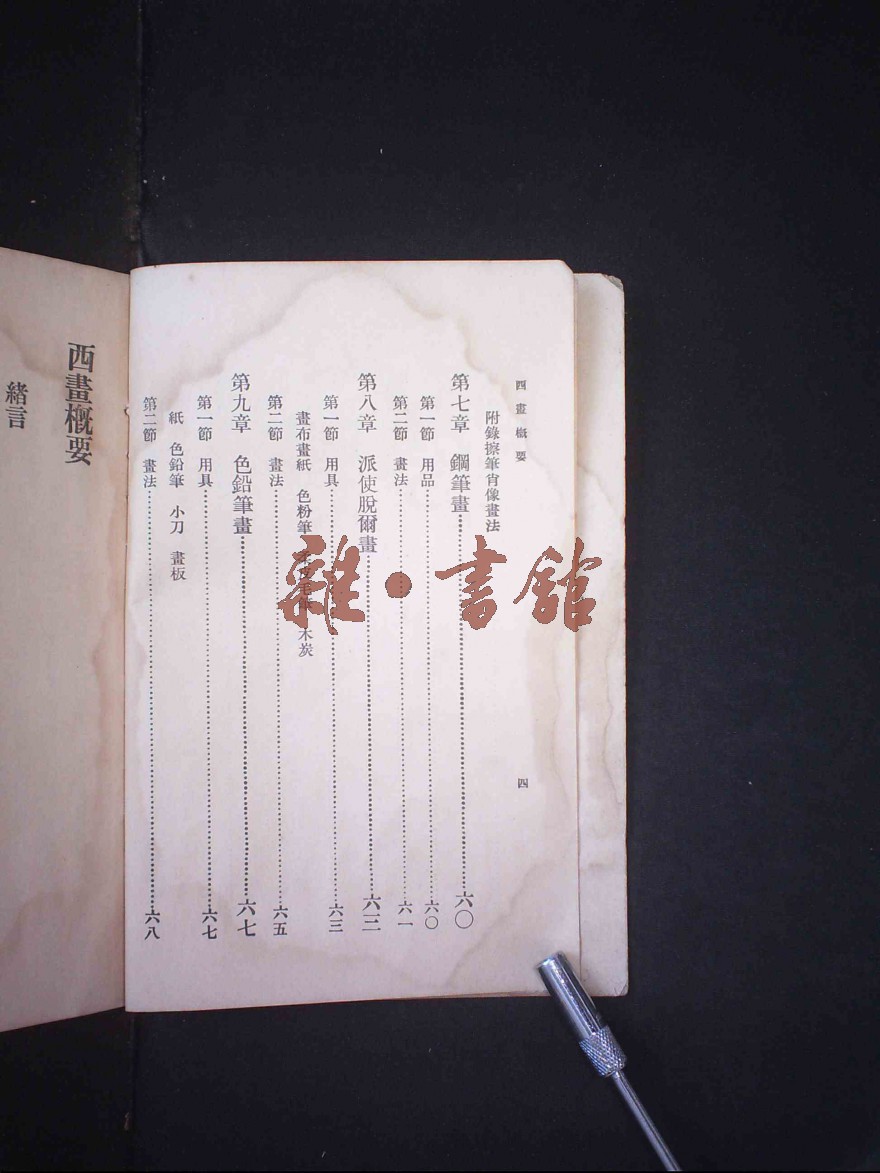 西畫概要
四
附錄擦筆肖像畫法
第七章　鋼筆畫……六〇
第一節　用品……六〇
第二節　畫法……六一
第八章　派使脫爾畫……六三
第一節　用具……六三
畫布畫紙　色粉筆　毛　木炭
第二節　畫法……六五
第九章　色鉛筆畫……六七
第一節　用具……六七
紙　色鉛筆　小刀　畫板
第二節　畫法……六八
西畫概要
緒言
雜·書館